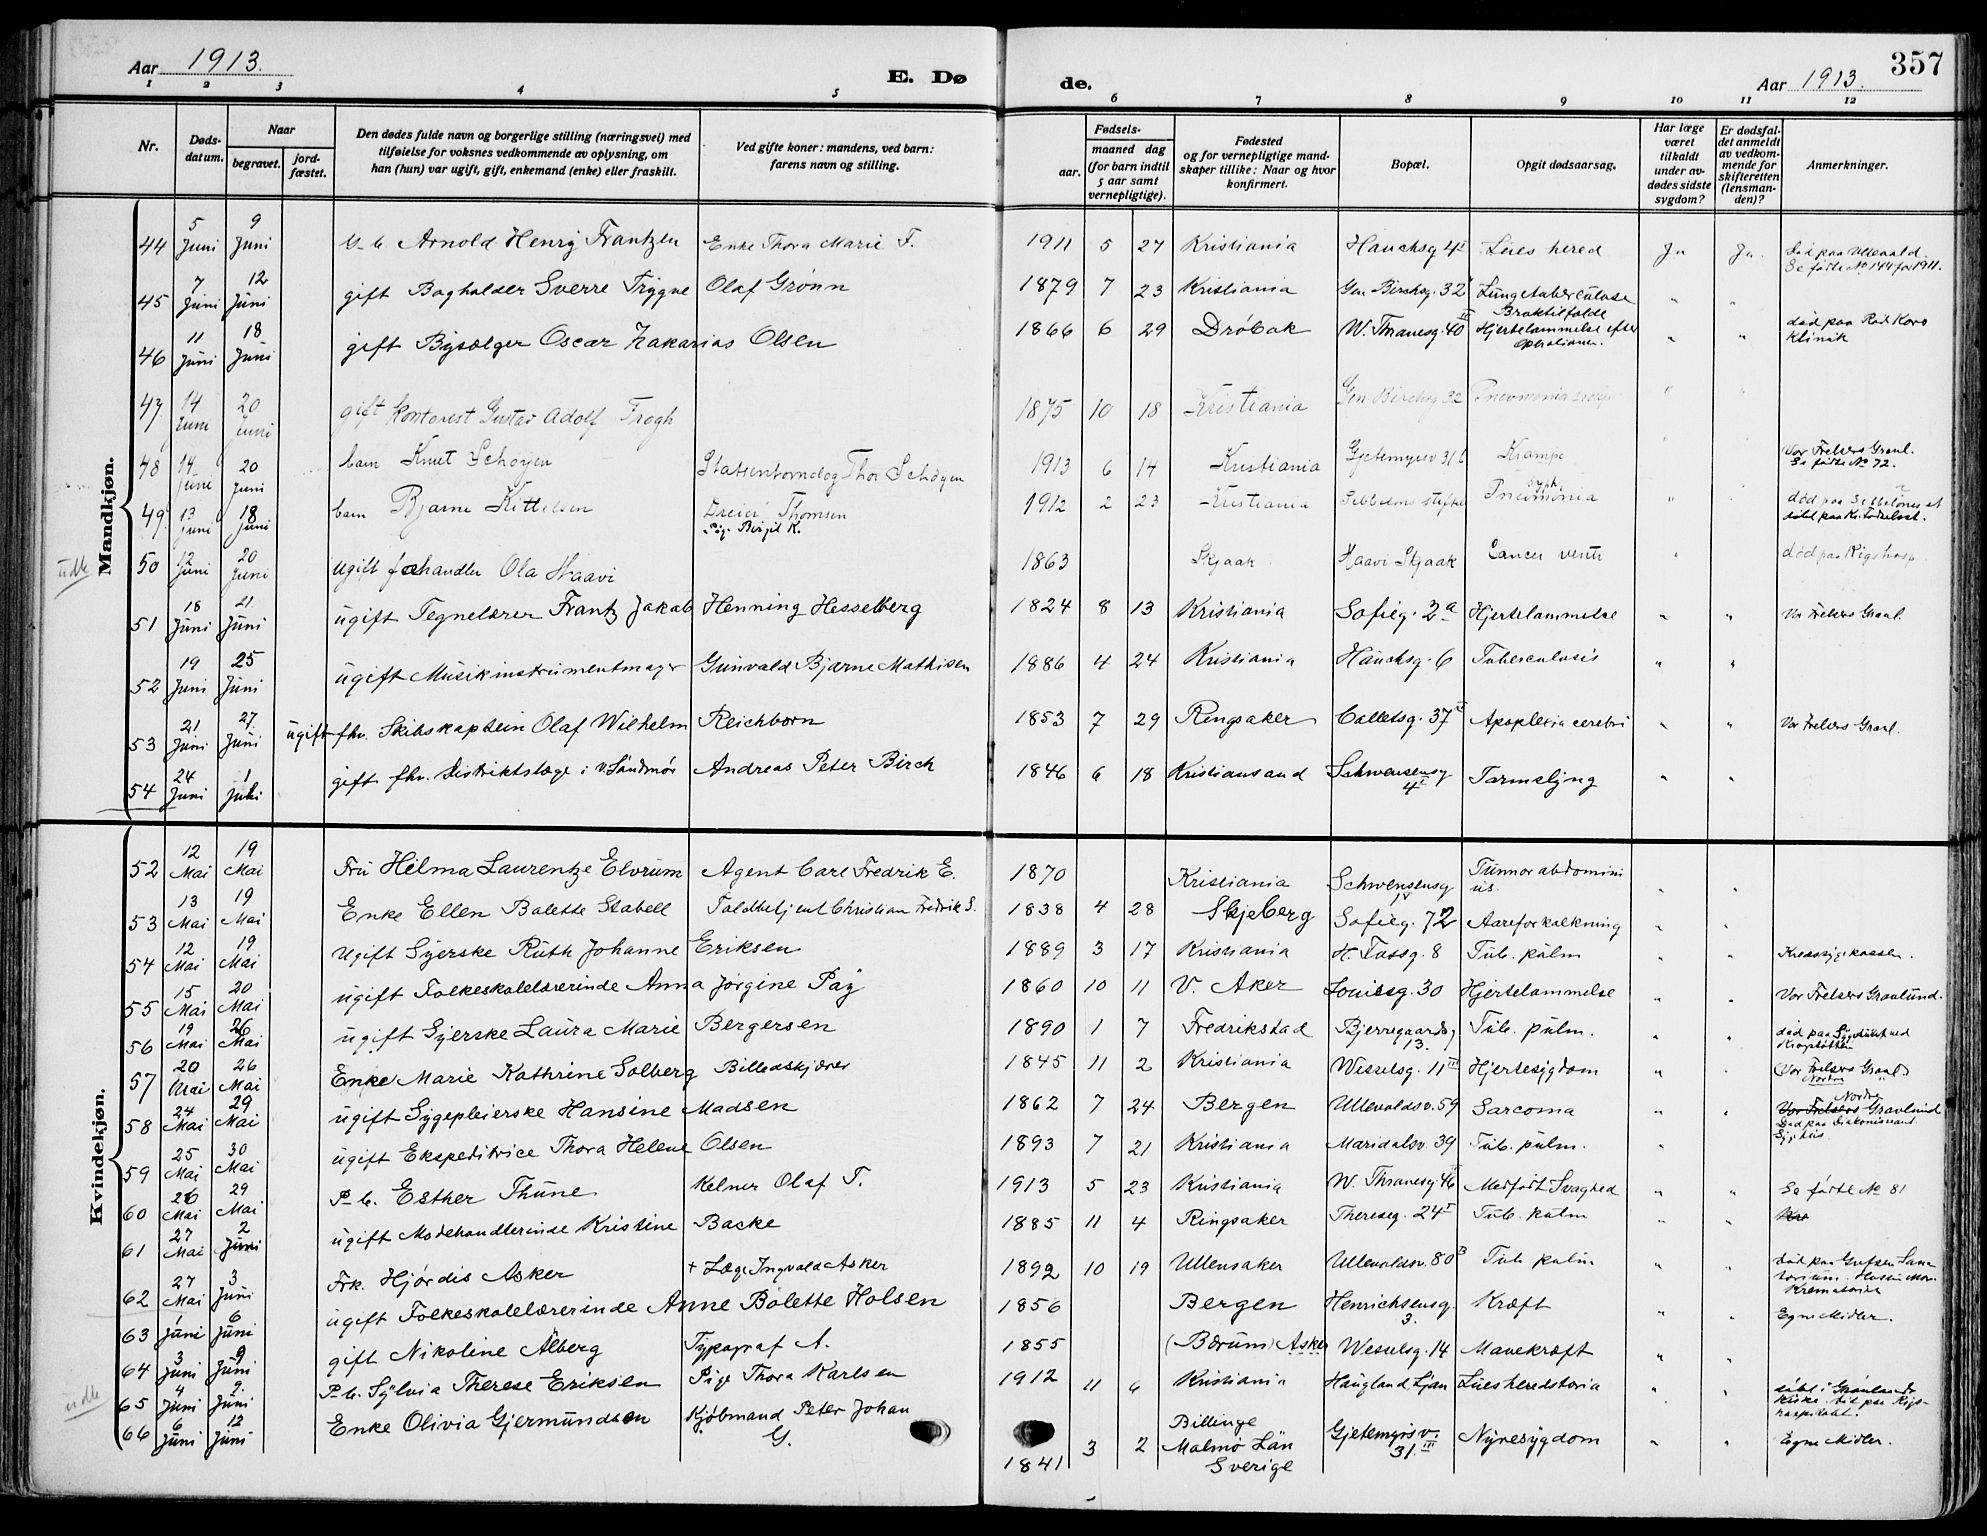 Aar 1913.
E. Døde.
Aar 1913.
357
1 2 3 4 5 6 7 8 9 10 11 12
Nr.
Dødsdatum.
Naar
begravet.
jordfæstet.
Den dødes fulde navn og borgerlige stilling (næringsvei) med
tilføielse for voksnes vedkommende av oplysning, om
han (hun) var ugift, gift, enkemand (enke) eller fraskilt.
Ved gifte koner: mandens, ved barn:
farens navn og stilling.
Fødsels-
aar.
maaned dag
(for barn indtil
5 aar samt
vernepligtige).
Fødested
og for vernepligtige mand-
skaper tillike: Naar og hvor
konfirmert.
Bopæl.
Opgit dødsaarsag.
Har læge
været
tilkaldt
under av-
dødes sidste
sygdom?
Er dødsfal-
det anmeldt
av vedkom-
mende for
skifteretten
(lensman-
den)?
Anmerkninger.
Mandkjøn.
44 5 Juni 9 Juni Arnold Henry Frantzen Enke Thora Marie F. 1911 5 27 Kristiania Hauchsg 4 Lues hered Ja Ja. Død paa Ullevaal. Se fødte No 144 for 1911.
45 7 Juni 12 Juni gift Bogholder Sverre Trygve Olaf Grønn 1879 7 23 Kristiania Gen. Birchsg. 32 Lungetuberculose " "
46 11 Juni 18 Juni gift Bysælger Oscar Zakarias Olsen 1866 6 29 Drøbak W. Thranesg. 40 Hjertelammelse efter Operationen. " " død paa Rød Kors Klinik
47 14 Juni 20 Juni gift Kontorist Gustav Adolf Frogh 1875 10 18 Kristiania Gen. Birchsg 32 Pneumonia "
48 14 Juni 20 Juni barn Knut Schøyen Thor Schøyen 1913 6 14 Kristiania Gjetemyrsv 31 Krampe Vor Frelsers Gravl. Se fødte No 72.
49 13 Juni 18 Juni barn Bjarne Kittelsen Dreier Thomsen Pige Birgit K. 1912 2 23 Kristiania Sebbelows stiftelse Pneumonia død paa Sebbelows st.
50 12 Juni 20 Juni ugift Ola Haavi 1863 Skjaak Haavi Skjaak Cancer ventr død paa Rigshosp
udb
51 18 Juni 21 Juni ugift Tegnelærer Frantz Jakob Henning Hesselberg 1824 8 13 Kristiania Sofieg. 2a Hjertelammelse " " Vor Frelsers Gravl.
52 19 Juni 25 Juni ugift Musikinstrumentmager Gunvald Bjarne Mathisen 1886 4 24 Kristiania Hauchsg. 6 Tuberculosis " "
53 21 Juni 27 Juni ugift fhv. Skibskaptein Olaf Wilhelm Reichborn 1853 7 29 Ringsaker Colletsg. 37 Apoplexia cerebri " " Vor Frelsers Gravl.
54 24 Juni 1 Juli gift fhv. Distriktslæge i V. Søndmør Andreas Peter Birch 1846 6 18 Kristiansand Schwensensg 4 Tarmslyng " "
Kvindekjøn.
52 12 Mai 19 Mai Fru Hilma Laurentze Elvrum Agent Carl Fredrik E. 1870 Kristiania Schwensensg IV Tumor abdominius. " "
53 13 Mai 19 Mai Enke Ellen Bolette Stabell Toldbetjent Christian Fredrik S. 1838 4 28 Skjeberg Sofieg. 72 Aareforkalkning " "
54 12 Mai 19 Mai ugift Syerske Ruth Johanne Eriksen 1889 3 17 Kristiania H. Tossg. 8 Tub. pulm " " Kredssygekassen.
55 15 Mai 20 Mai ugift Folkeskolelærerinde Anna Jørgine Pay 1860 10 11 V. Aker Louisesg. 30 Hjertelammelse " " Vor Frelsers Gravlund.
56 19 Mai 26 Mai ugift Syerske Laura Marie Bergersen 1890 1 7 Fredrikstad Bjerregaardsg 13. Tub. pulm. " " død paa Sygehuset ved Krogstøtten
57 20 Mai 26 Mai Enke Marie Kathrine Solberg Billedskjærer 1845 11 2 Kristiania Wesselsg. 11 III Hjertesygdom " " (Vor Frelsers Gravl.) Nordre "
58 24 Mai 29 Mai ugift Sygepleierske Hansine Madsen 1862 7 24 Bergen Ullevoldsv. 59 Sarcoma " " Vor Frelsers Nordre Gravlund Død paa Diakonisseanst. Sygehus.
59 25 Mai 30 Mai ugift Ekspeditrice Thora Helene Olsen 1893 7 21 Kristiania Maridalsv. 39 Tub. pulm. "
60 26 Mai 29 Mai P. b. Esther Thune Kelner Olaf T. 1913 5 23 Kristiania W. Thranesg. 46 Medfødt Svaghed " " Se fødte No 81
61 27 Mai 2 Juni ugift Modehandlerinde Kristine Backe 1885 11 4 Ringsaker Thereseg. 24 I Tub. pulm " "
62 27 Mai 3 Juni Frk. Hjørdis Asker + Læge Ingvald Asker 1892 10 19 Ullensaker Ullevoldsv. 80 B Tub pulm " " død paa Grefsen Sanatorium.
63 1 Juni 6 Juni ugift Folkeskolelærerinde Anne Bolette Holsen 1856 Bergen Henrichsensg. 3. Kræft " " Egne Midler.
64 3 Juni 9 Juni gift Nikoline Alberg Typograf A. 1855 (Bærum) Asker Wesselsg. 14 Mavekræft " "
65 4 Juni 9 Juni P. b. Sylvia Therese Eriksen Pige Thora Karlsen 1912 11 6 Kristiania Haugland, Ljan Lues heredetaria " " døbt i Grønlands Kirke. død paa Rigshospitalet.
udb
66 6 Juni 12 Juni Enke Olivia Gjermundsen Kjøbmand Peter Johan G. 1841 3 2 Billinge Malmø Län Sverige Gjetemyrsv. 31. III Nyresygdom " " Egne Midler.